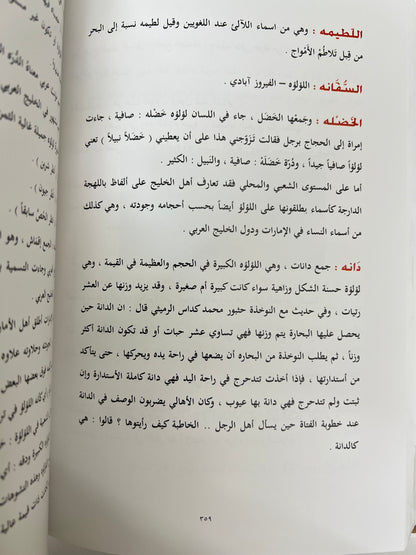 اللَّطيمه : وهي من اسماء اللآلئ عند اللغويين وقيل لطيمه نسبة إلى البحر
من قبل تلاطُمْ الأمْواج .
السُّفَّانه : اللؤلؤه – الفيروز آبادي .
الخَضْله : وجَمعْها الخَضَل ، جاء في اللسان لؤلؤه خَضْله : صافية ، جاءت
إمرأة إلى الحجاج برجل فقالت تَزَوّجَني هذا على أن يعطيني ( خَضَلاً نبيلاً ) تعني
لؤلؤاً صافياً جيداً ، ودُرّة خَضَلَة : صافية ، والنبيل : الكثير .
أما على المستوى الشعبي والمحلي فقد تعارف أهل الخليج على ألفاظ باللهجة
الدارجة كأسماء يطلقونها على اللؤلؤ أيضاً بحسب أحجامه وجودته ، وهي كذلك
من أسماء النساء في الإمارات ودول الخليج العربي .
دَانه : جمع دانات ، وهي اللؤلؤه الكبيرة في الحجم والعظيمة في القيمة ، وهي
لؤلؤة حسنة الشكل وزاهية سواء كانت كبيرة أم صغيرة ، وقد يزيد وزنها عن العشر
رتيات ، وفي حديث مع النوخذة حثبور محمد كداس الرميثي قال : ان الدانة حين
يحصل عليها البحارة يتم وزنها فهي تساوي عشر حبات أو قد تكون الدانه أكثر
وزناً ، ثم يطلب النوخذة من البحاره أن يضعها في راحة يده ويحركها ، حتى يتأكد
من أستدارتها ، فإذا أخذت تتدحرج في راحة اليد فهي دانة كاملة الأستدارة وإن
ثبتت ولم تتدحرج فهي دانة بها عيوب ، وكان الأهالي يضربون الوصف في الدانة
عند خطوبة الفتاة حين يسأل أهل الرجل .. الخاطبة كيف رأيتوها ؟ قالوا : هي
كالدانه .
٣٥٩